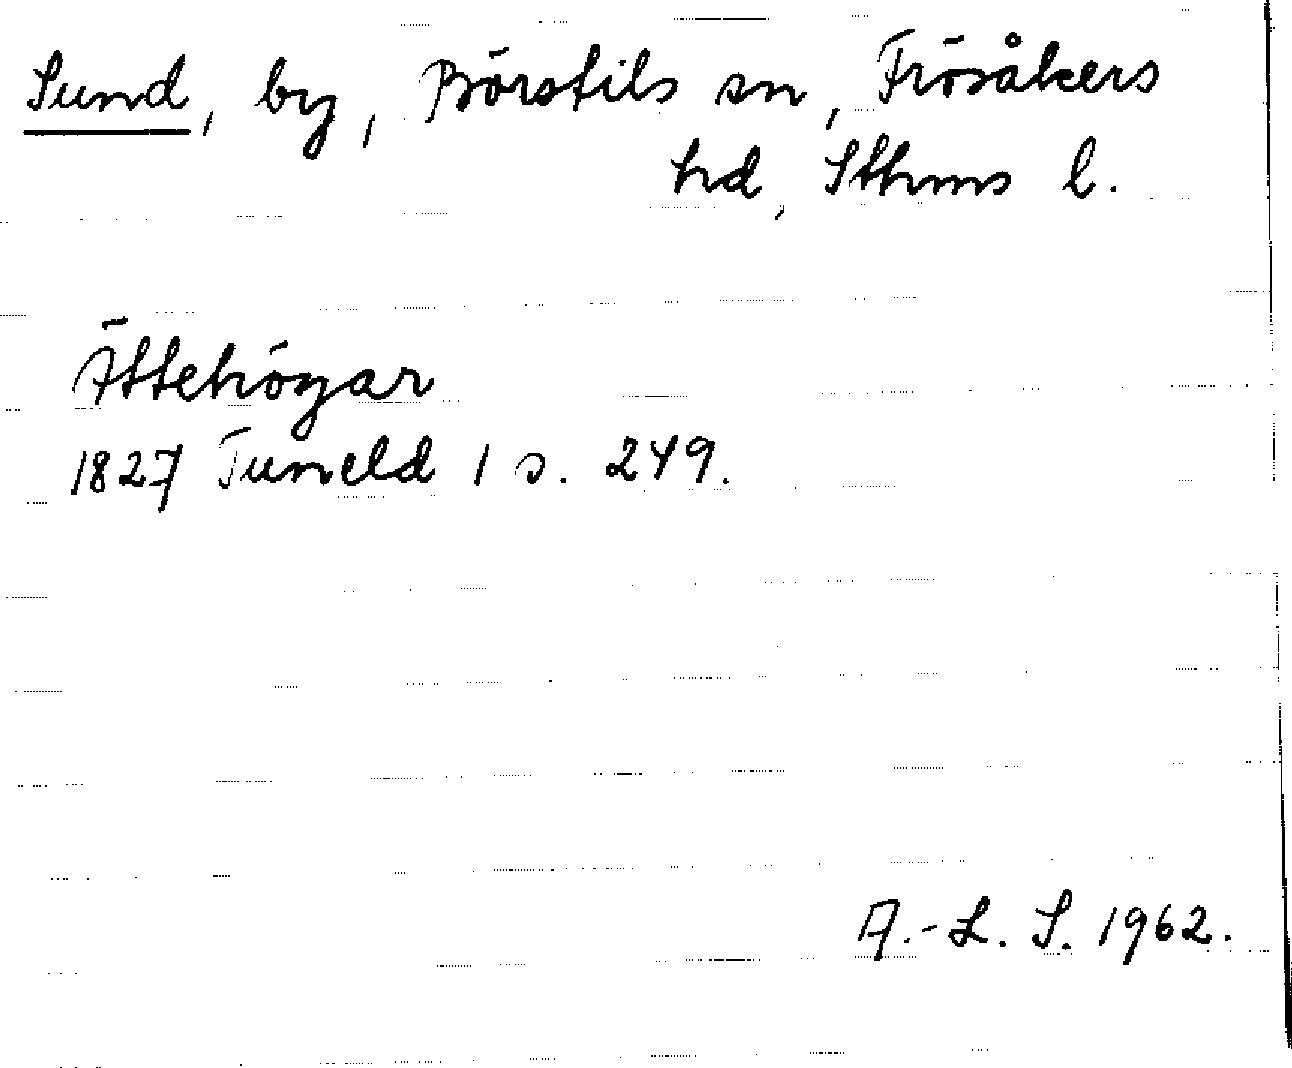 Sund, by, Börstils sn, Frösåkers
hd, Sthms l.
Ättehögar
1827 Tuneld 1 s. 249.
A.-L. S. 1962.